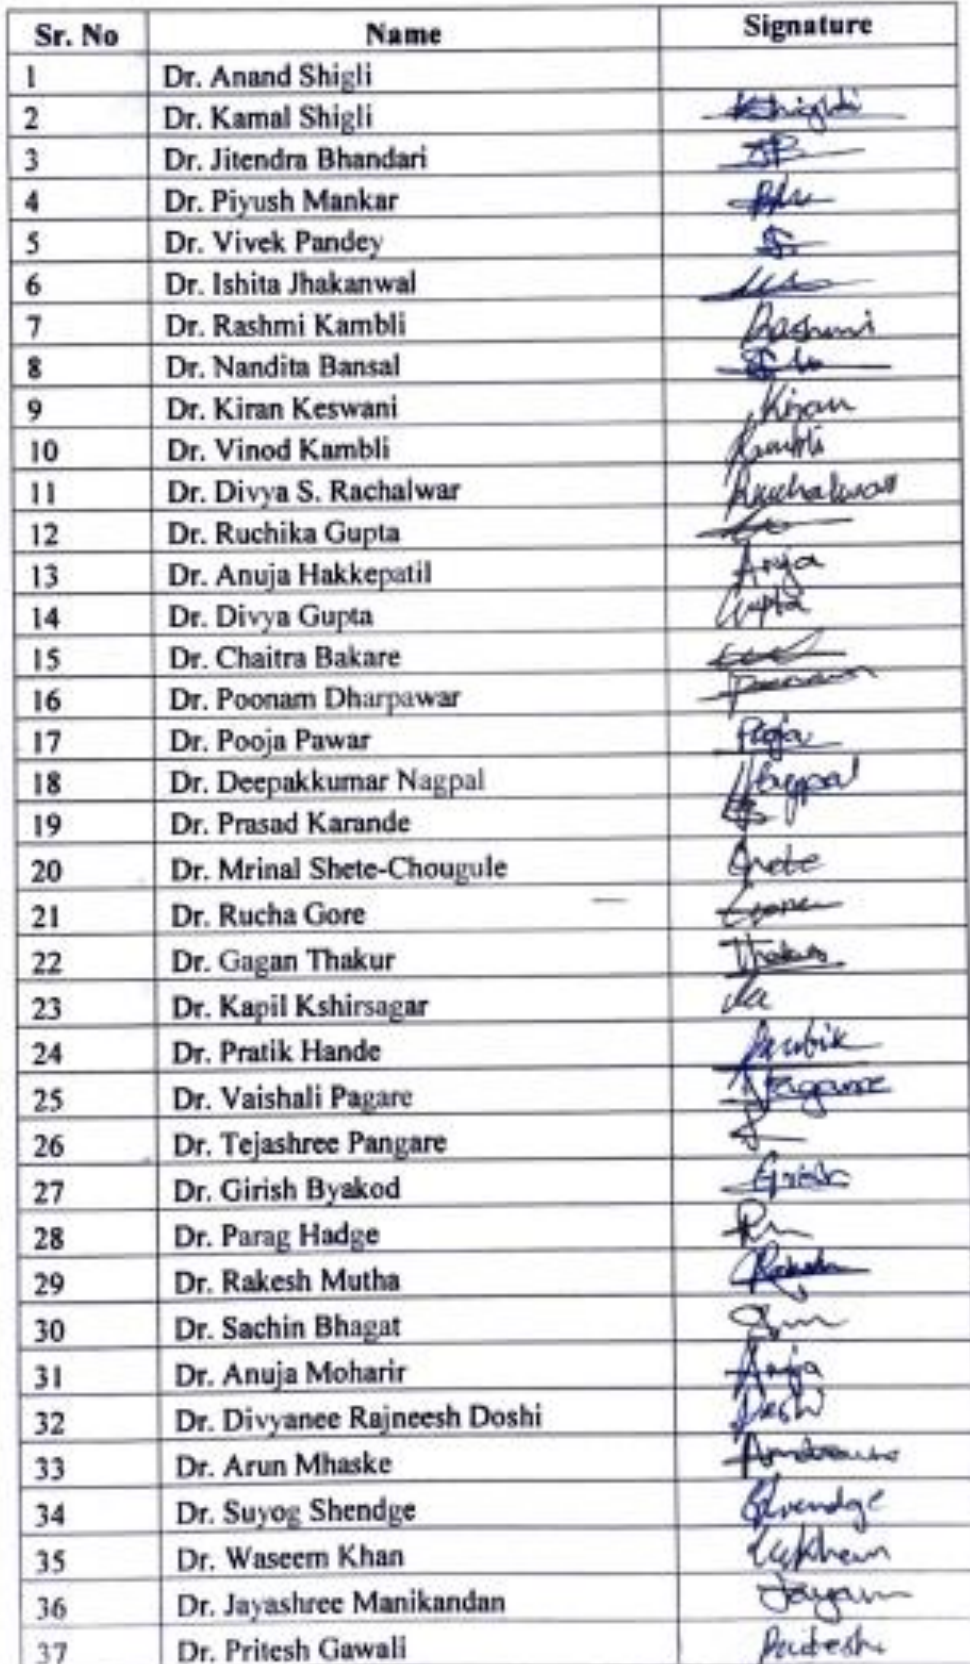 Sr. No Name Signature
1 Dr. Anand Shigli
2 Dr. Kamal Shigli KShigli
3 Dr. Jitendra Bhandari JB
4 Dr. Piyush Mankar
5 Dr. Vivek Pandey
6 Dr. Ishita Jhakanwal
7 Dr. Rashmi Kambli Rashmi
8 Dr. Nandita Bansal
9 Dr. Kiran Keswani Kiran
10 Dr. Vinod Kambli Kambli
11 Dr. Divya S. Rachalwar Rachalwar
12 Dr. Ruchika Gupta
13 Dr. Anuja Hakkepatil Anuja
14 Dr. Divya Gupta Gupta
15 Dr. Chaitra Bakare
16 Dr. Poonam Dharpawar Poonam
17 Dr. Pooja Pawar Pooja
18 Dr. Deepakkumar Nagpal Nagpal
19 Dr. Prasad Karande
20 Dr. Mrinal Shete-Chougule Shete
21 Dr. Rucha Gore
22 Dr. Gagan Thakur Thakur
23 Dr. Kapil Kshirsagar
24 Dr. Pratik Hande Pratik
25 Dr. Vaishali Pagare VPagare
26 Dr. Tejashree Pangare
27 Dr. Girish Byakod Girish
28 Dr. Parag Hadge
29 Dr. Rakesh Mutha Rakesh
30 Dr. Sachin Bhagat
31 Dr. Anuja Moharir Anuja
32 Dr. Divyanee Rajneesh Doshi Doshi
33 Dr. Arun Mhaske
34 Dr. Suyog Shendge Shendge
35 Dr. Waseem Khan
36 Dr. Jayashree Manikandan
37 Dr. Pritesh Gawali Pritesh